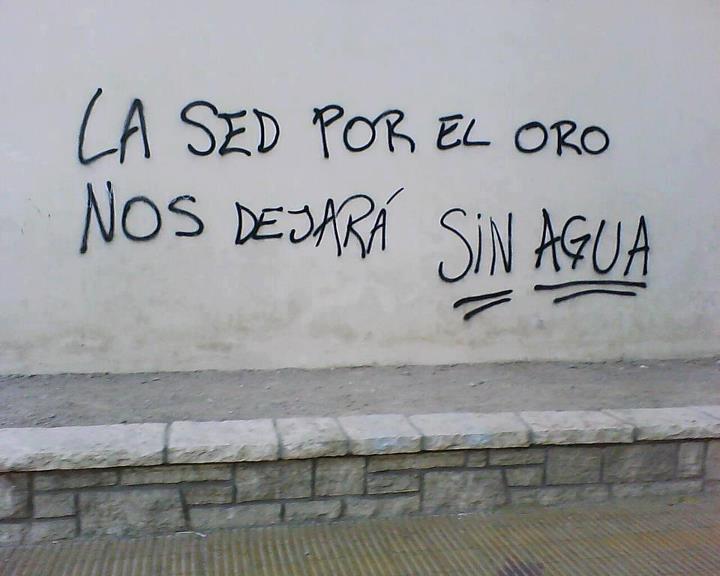 LA SED POR EL ORO
NOS DEJARÁ SIN AGUA